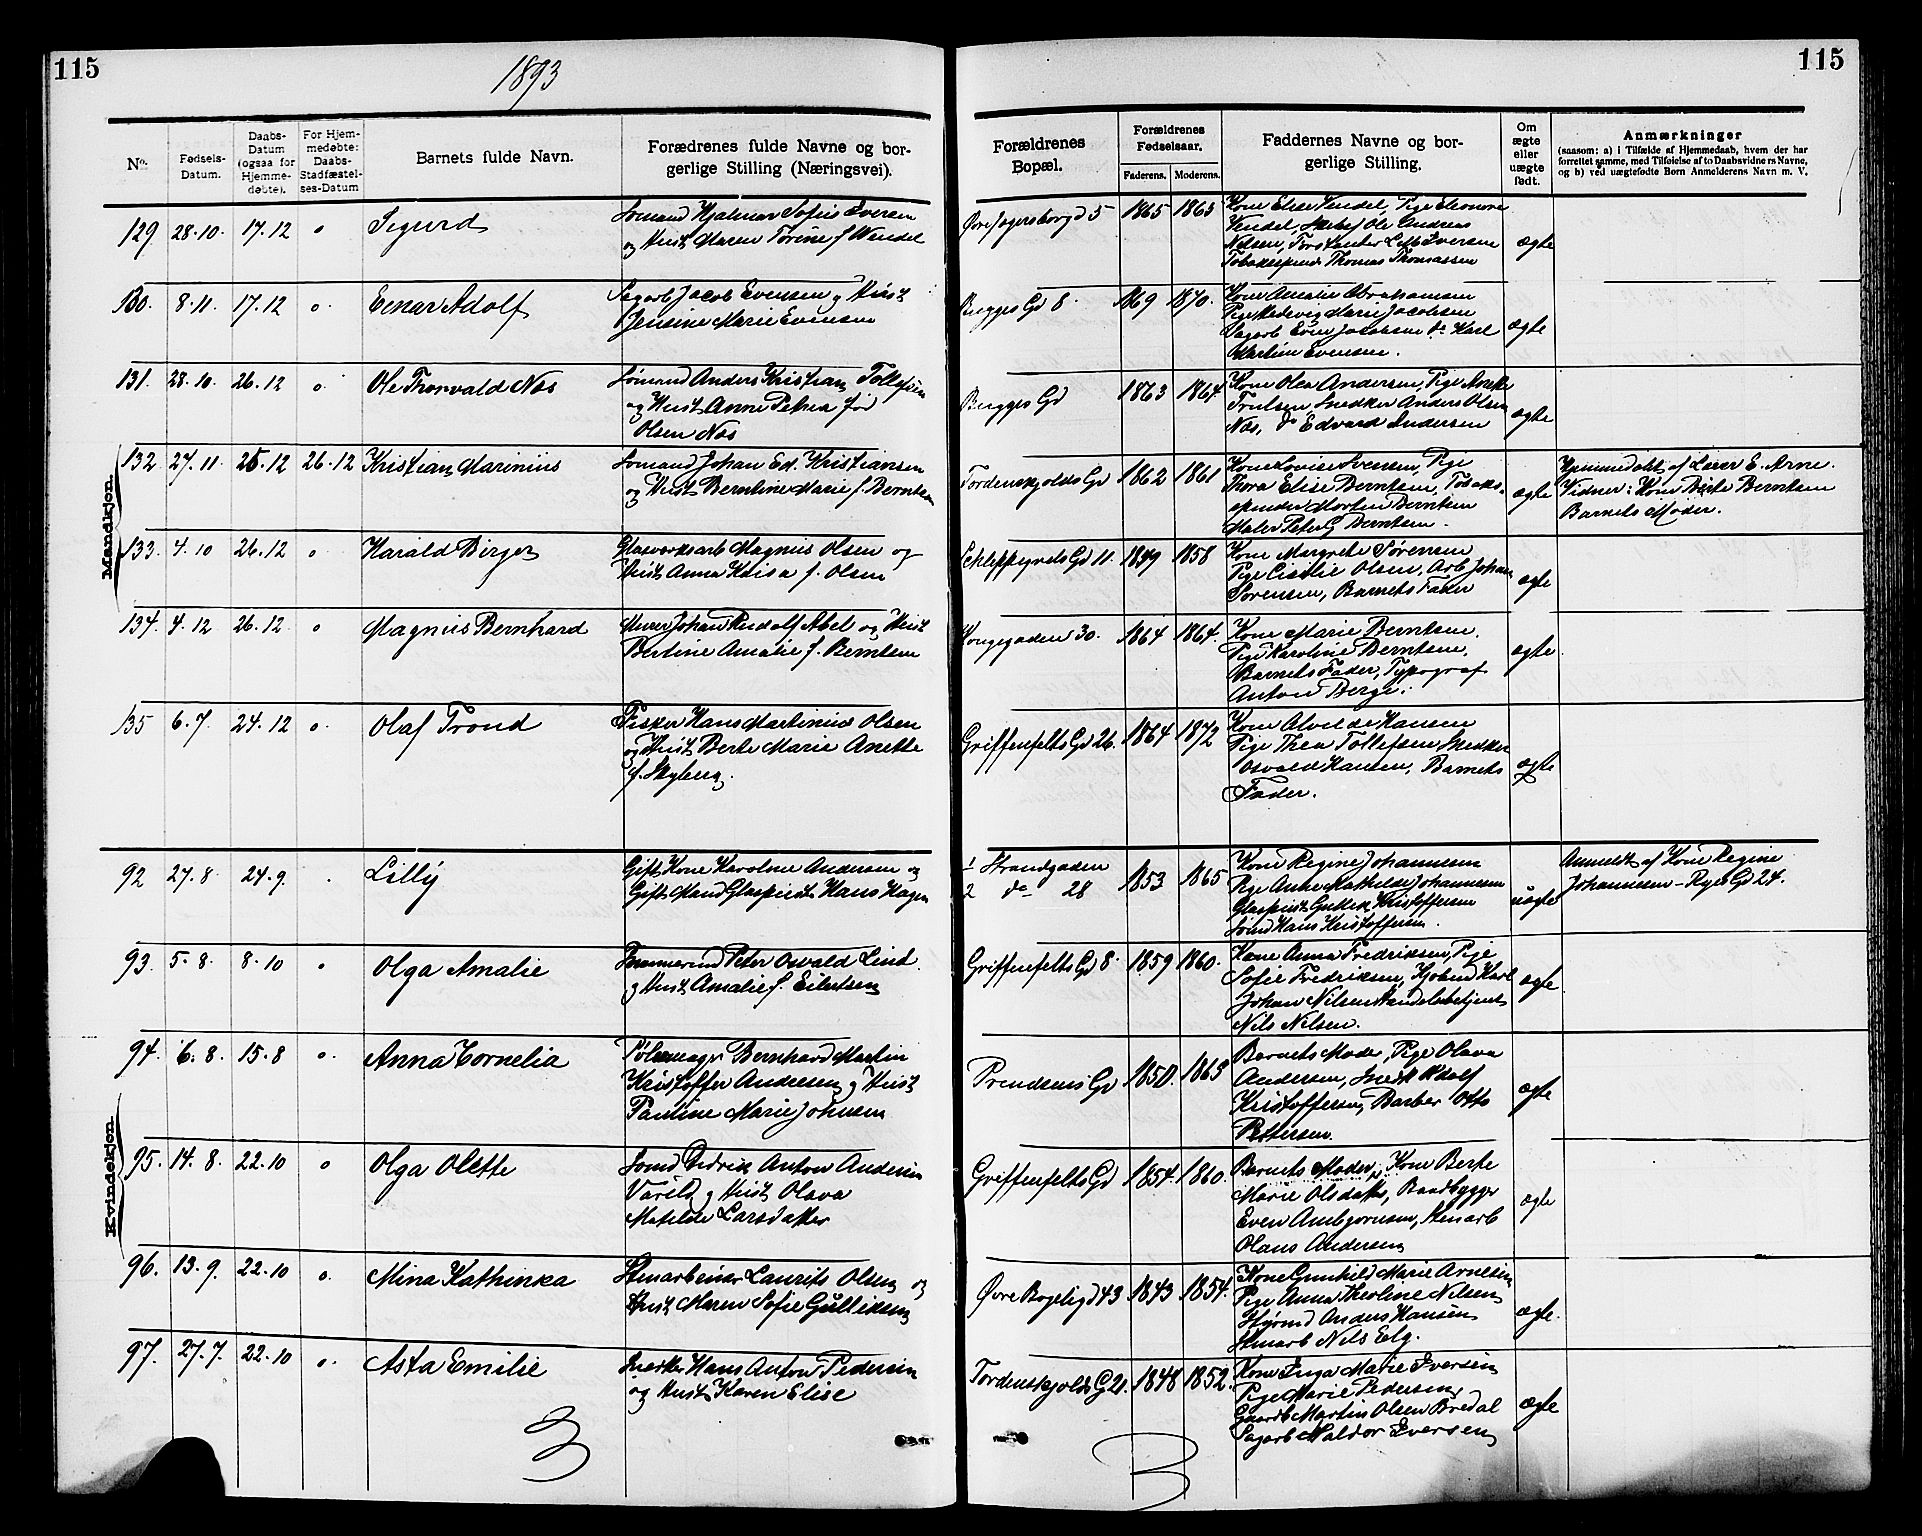 115
1893
115
No.
Fødsels-Datum.
Daabs-Datum (ogsaa for Hjemme-døbte).
For Hjem-medøbte: Daabs-Stadfæstel-ses-Datum
Barnets fulde Navn.
Forældrenes fulde Navne og bor-gerlige Stilling (Næringsvei).
Forældrenes Bopæl.
Forældrenes Fødselsaar.
Faderens.
Moderens.
Faddernes Navne og bor-gerlige Stilling.
Om ægte eller uægte født.
Anmærkninger
(saasom: a) i Tilfælde af Hjemmedaab, hvem der har
forrettet samme, med Tilføielse af to Daabsvidners Navne,
og b) ved uægtefødte Børn Anmelderens Navn m. V.
Mandkjøn.
129 28.10. 17.12 o Sigurd
Sømand Hjalmar Sofus Iversen
og Hust. Maren Torine f. Wendel
Øvre Jegersborgd 5 1865 1863
Kone Elise Vendel, Pige Eleonore
Vendel, Ole Andreas
Nilsen, Iversen
Thomas Thomassen
ægte
130. 8.11. 17.12 o. Einar Adolf
Sagarb Jacob Evensen og Hust
Jensine Marie Evensen
Bugges Gd 8. 1869 1870.
Kone Amalie Abrahamsen
Pige Hedevig Marie Jacobsen
Sagarb Even Jacobsen do Karl
Martin Evensen.
ægte
131. 28.10. 26.12 o. Ole Thorvald Næs
Sømand Anders Kristian Tollefsen
og Hust. Anne Petrea fød
Olsen Næs
Bugges Gd 1863 1864.
Kone Olea Andersen, Pige
Trulsen, Snedker Anders Olsen
Næs, do Edvard Andersen
ægte
132 27.11. 25.12 26.12 Kristian Marinius
Sømand Johan Ed. Kristiansen
og Hust. Berntine Marie f. Berntsen
Tordenskjolds Gd 1862 1861
Kone Lovise Svensen, Pige
Thora Elise Berntsen, Tobaks-
spinder Morten Berntsen
Maler Peter G Berntsen.
ægte
Hjemmedøbt af Læser E. Arne.
Vidner: Kone Berte Berntsen
Barnets Moder.
133. 4.10 26.12 o Harald Birger
Glasværksarb Magnus Olsen og
Hust. Anna Lovisa f. Olsen
Schleppegrels Gd 11. 1849 1858
Kone Margrete Sørensen
Pige Cicilie Olsen, Arb. Johan
Sørensen, Barnets Fader
ægte
134. 4.12 26.12 o Magnus Bernhard
Murer Johan Rudolf Abel og Hust
Bertine Amalie f. Berntsen
Kongegaden 30. 1864 1864.
Kone Marie Berntsen.
Pige Karoline Berntsen,
Barnets Fader, Typograf
Anton Berge.
ægte
135 6.7. 24.12 o. Olaf Trond
Fisker Hans Martinius Olsen
og Hust. Berte Marie Anette
f. Skyberg.
Griffenfelts Gd 26. 1864 1872
Kone Alvilde Hansen
Pige Thea Tollefsen Snedker
Osvald Hansen, Barnets
Fader.
ægte
Kvindekjøn.
92 27.8 24.9. . Lilly
Gift Kone Karoline Andersen og
Gift Mand Glaspuster Hans Hagen
1 Strandgaden
2 do 28 1853 1865
Kone Regine Johannesen
Pige Anne Mathilde Johannesen
Glaspust. Kristoffersen
Sømd Hans Kristoffersen
uægte
Anmeldt af Kone Regine
Johannesen - Ryes Gd 24.
93. 5.8. 8.10 o Olga Amalie
Tømmermd Peter Osvald Lind.
og Hust. Amalie f. Eilertsen
Griffenfelts Gd 8. 1859 1860.
Kone Anna Fredriksen, Pige
Sofie Fredriksen, Karl
Johan Nilsen Handelsbetjent
Nils Nilsen.
ægte
94. 6.8. 15.8 o. Anna Cornelia
Pølsemager Bernhard Martin
Kristoffer Andersen og Hust
Pauline Marie Johnsen
Prendsens Gd 1850. 1863
Barnets Moder, Pige Olava
Andersen, Adolf
Kristoffersen, Barber Otto
Pettersen.
ægte
95. 14.8. 22.10 o Olga Olette
Sømd Didrik Anton Andersen
Varild og Hust Olava
Matilde Larsdatter
Griffenfelts Gd 1854. 1860.
Barnets Moder, Kone Berte
Marie Olsdatter, Baadbygger
Even Ambjørnsen, Stenarb
Olaus Andersen
ægte
96. 13.9. 22.10 o. Mina Kathinka
Stenarbeider Laurits Olsen og
Hust. Maren Sofie Gulliksen
Øvre Bøgeligd 43 1843 1854.
Kone Gunhild Marie Arnesen
Pige Anna Theoline Nilsen
Styrmd Anders Hansen
Stenarb Nils Elg.
ægte.
97. 27.7. 22.10 o. Asta Emilie
Snedker Hans Anton Pedersen
og Hust. Karen Elise
Tordenskjolds G 21. 1848 1852.
Kone Inga Marie Iversen
Pige Marie Pedersen
Gaardb Martin Olsen Bredal
Sagarb Haldor Iversen
ægte